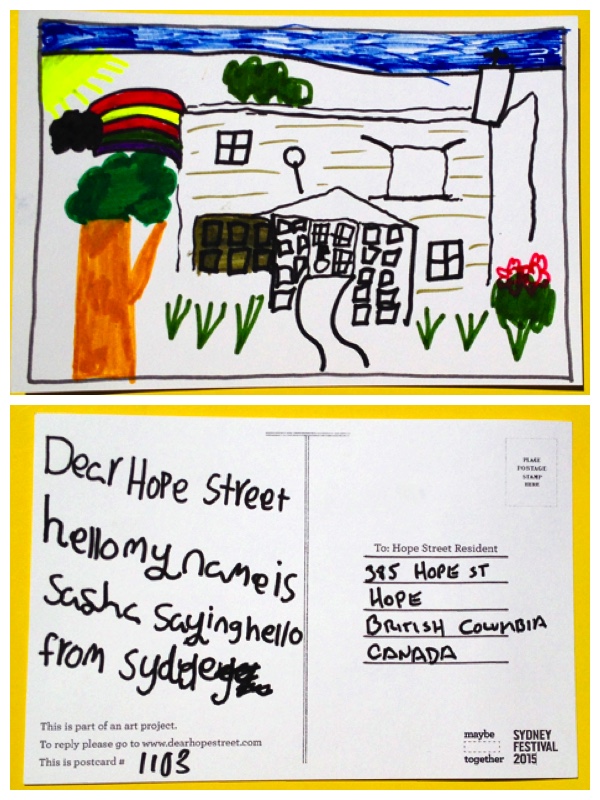 Dear Hope Street
hello my name is
Sasha saying hello
from
This is part of an art project.
To reply please go to www.dearhopestreet.com
This is postcard # 1103
PLACE
POSTAGE
STAMP
HERE
To: Hope Street Resident
385 HOPE ST
HOPE
BRITISH COLUMBIA
CANADA
maybe
together
SYDNEY
FESTIVAL
2015